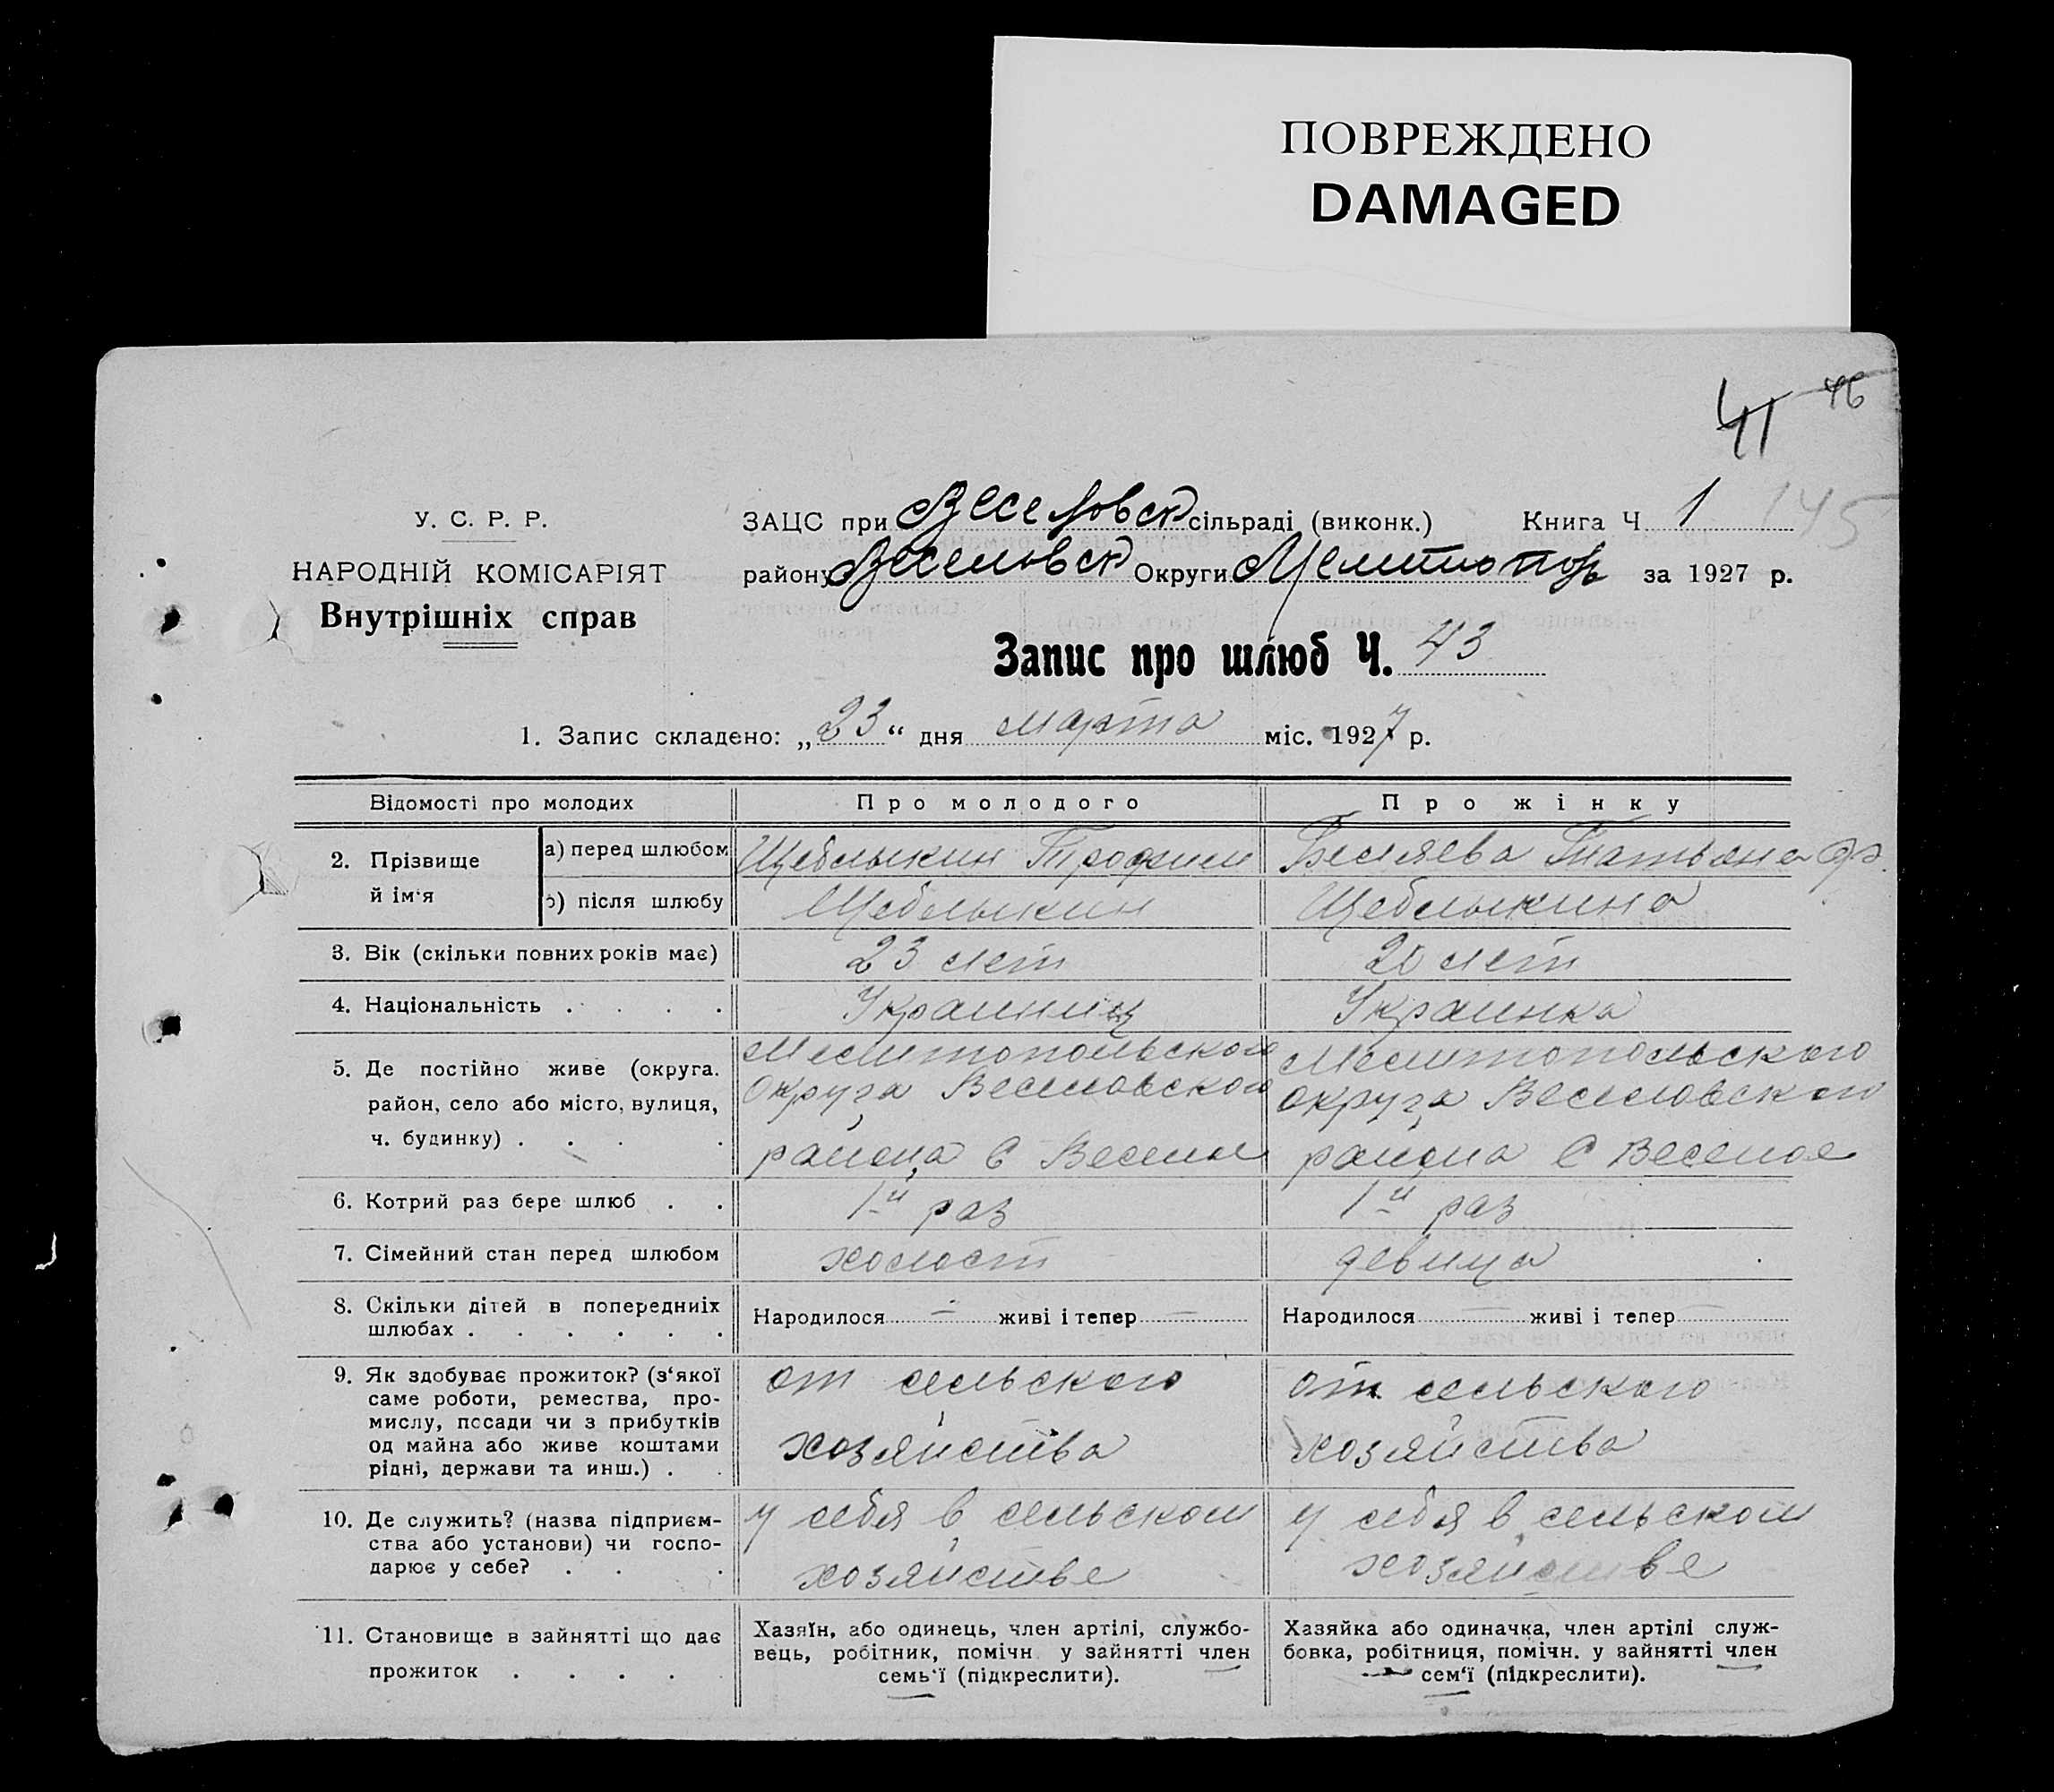 ПОВРЕЖДЕНО
DAMAGED
41 46
145
У. С. Р. Р.
НАРОДНІЙ КОМІСАРІЯТ
Внутрішніх справ
ЗАЦС при Веселовск сільраді (виконк.) Книга Ч 1
району Веселовск Округи Мелитопор за 1927 р.
Запис про шлюб Ч. 43
1. Запис складено: „23“ дня марта міс. 1927 р.
Відомості про молодих Про молодого Про жінку
2. Прізвище й ім‘я
а) перед шлюбом Щеблыкин Трофим Беляева Татьяна
в) після шлюбу Щеблыкин Щеблыкина
3. Вік (скільки повних років має) 23 лет 20 лет
4. Національність . . . . Украинец Украинка
5. Де постійно живе (округа. район, село або місто, вулиця, ч. будинку) . . . .
Мелитопольского Мелитопольского
округа Веселовского округа Веселовского
района С Веселое района С Веселое
6. Котрий раз бере шлюб . . 1й раз 1й раз
7. Сімейний стан перед шлюбом холост девица
8. Скільки дітей в попередниіх шлюбах . . . . . .
Народилося — живі і тепер — Народилося — живі і тепер —
9. Як здобуває прожиток? (з‘якої саме роботи, ремества, промислу, посади чи з прибутків од майна або живе коштами рідні, держави та инш.) . .
от сельского от сельского
хозяйства хозяйства
10. Де служить? (назва підприємства або установи) чи господарює у себе? . . .
у себя в сельском у себя в сельском
хозяйстве хозяйстве
11. Становище в зайнятті що дає прожиток . . . . .
Хазяїн, або одинець, член артілі, службо-
вець, робітник, помічн у зайнятті член
семь‘ї (підкреслити).
Хазяйка або одиначка, член артілі служ-
бовка, робітниця, помічн. у зайнятті член
сем‘ї (підкреслити).